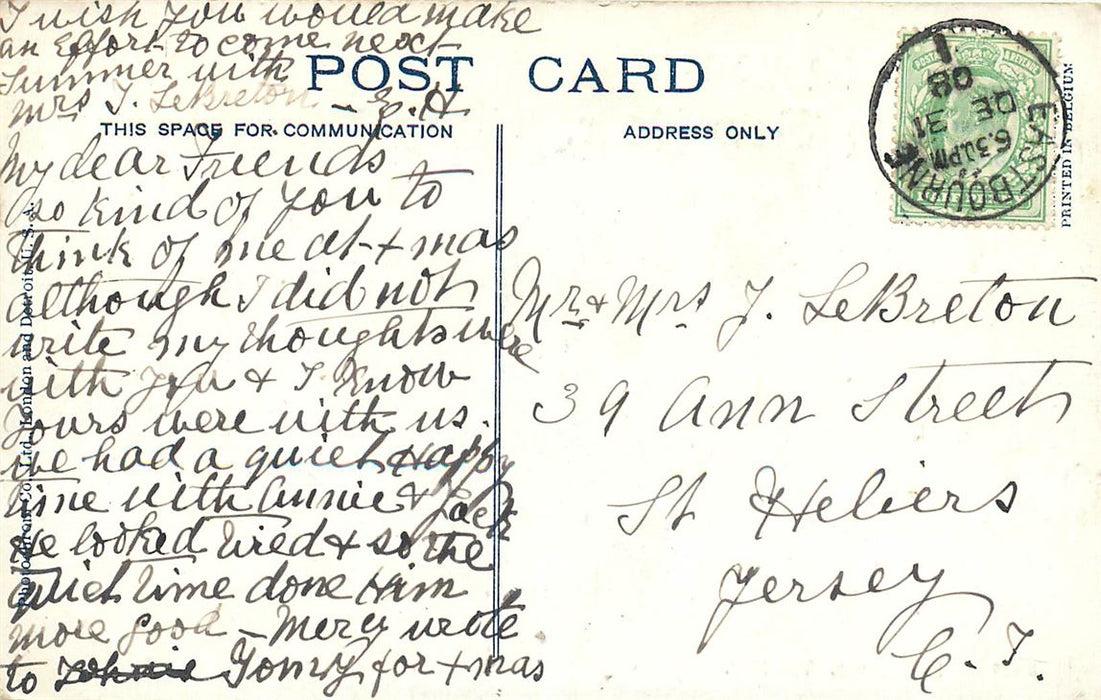 I wish you would make
an effort to come next
Summer with
Mrs J. LeBreton - E. H
POST CARD
THIS SPACE FOR COMMUNICATION
ADDRESS ONLY
My dear Friends
so kind of you to
think of me at Xmas
although I did not
write my thoughts were
with you & I know
yours were with us.
we had a quiet Happy
time with Annie & Jack
He looked tired & so the
quiet time done Him
more good - Mercy wrote
to Tomy for Xmas
Mr & Mrs J. LeBreton
39 Ann Street
St Heliers
Jersey
C. I.
EASTBOURNE
6.30 PM
DE 31
08
1
POSTAGE & REVENUE
PRINTED IN BELGIUM
Photochrom Co., Ltd., London and Detroit, U.S.A.